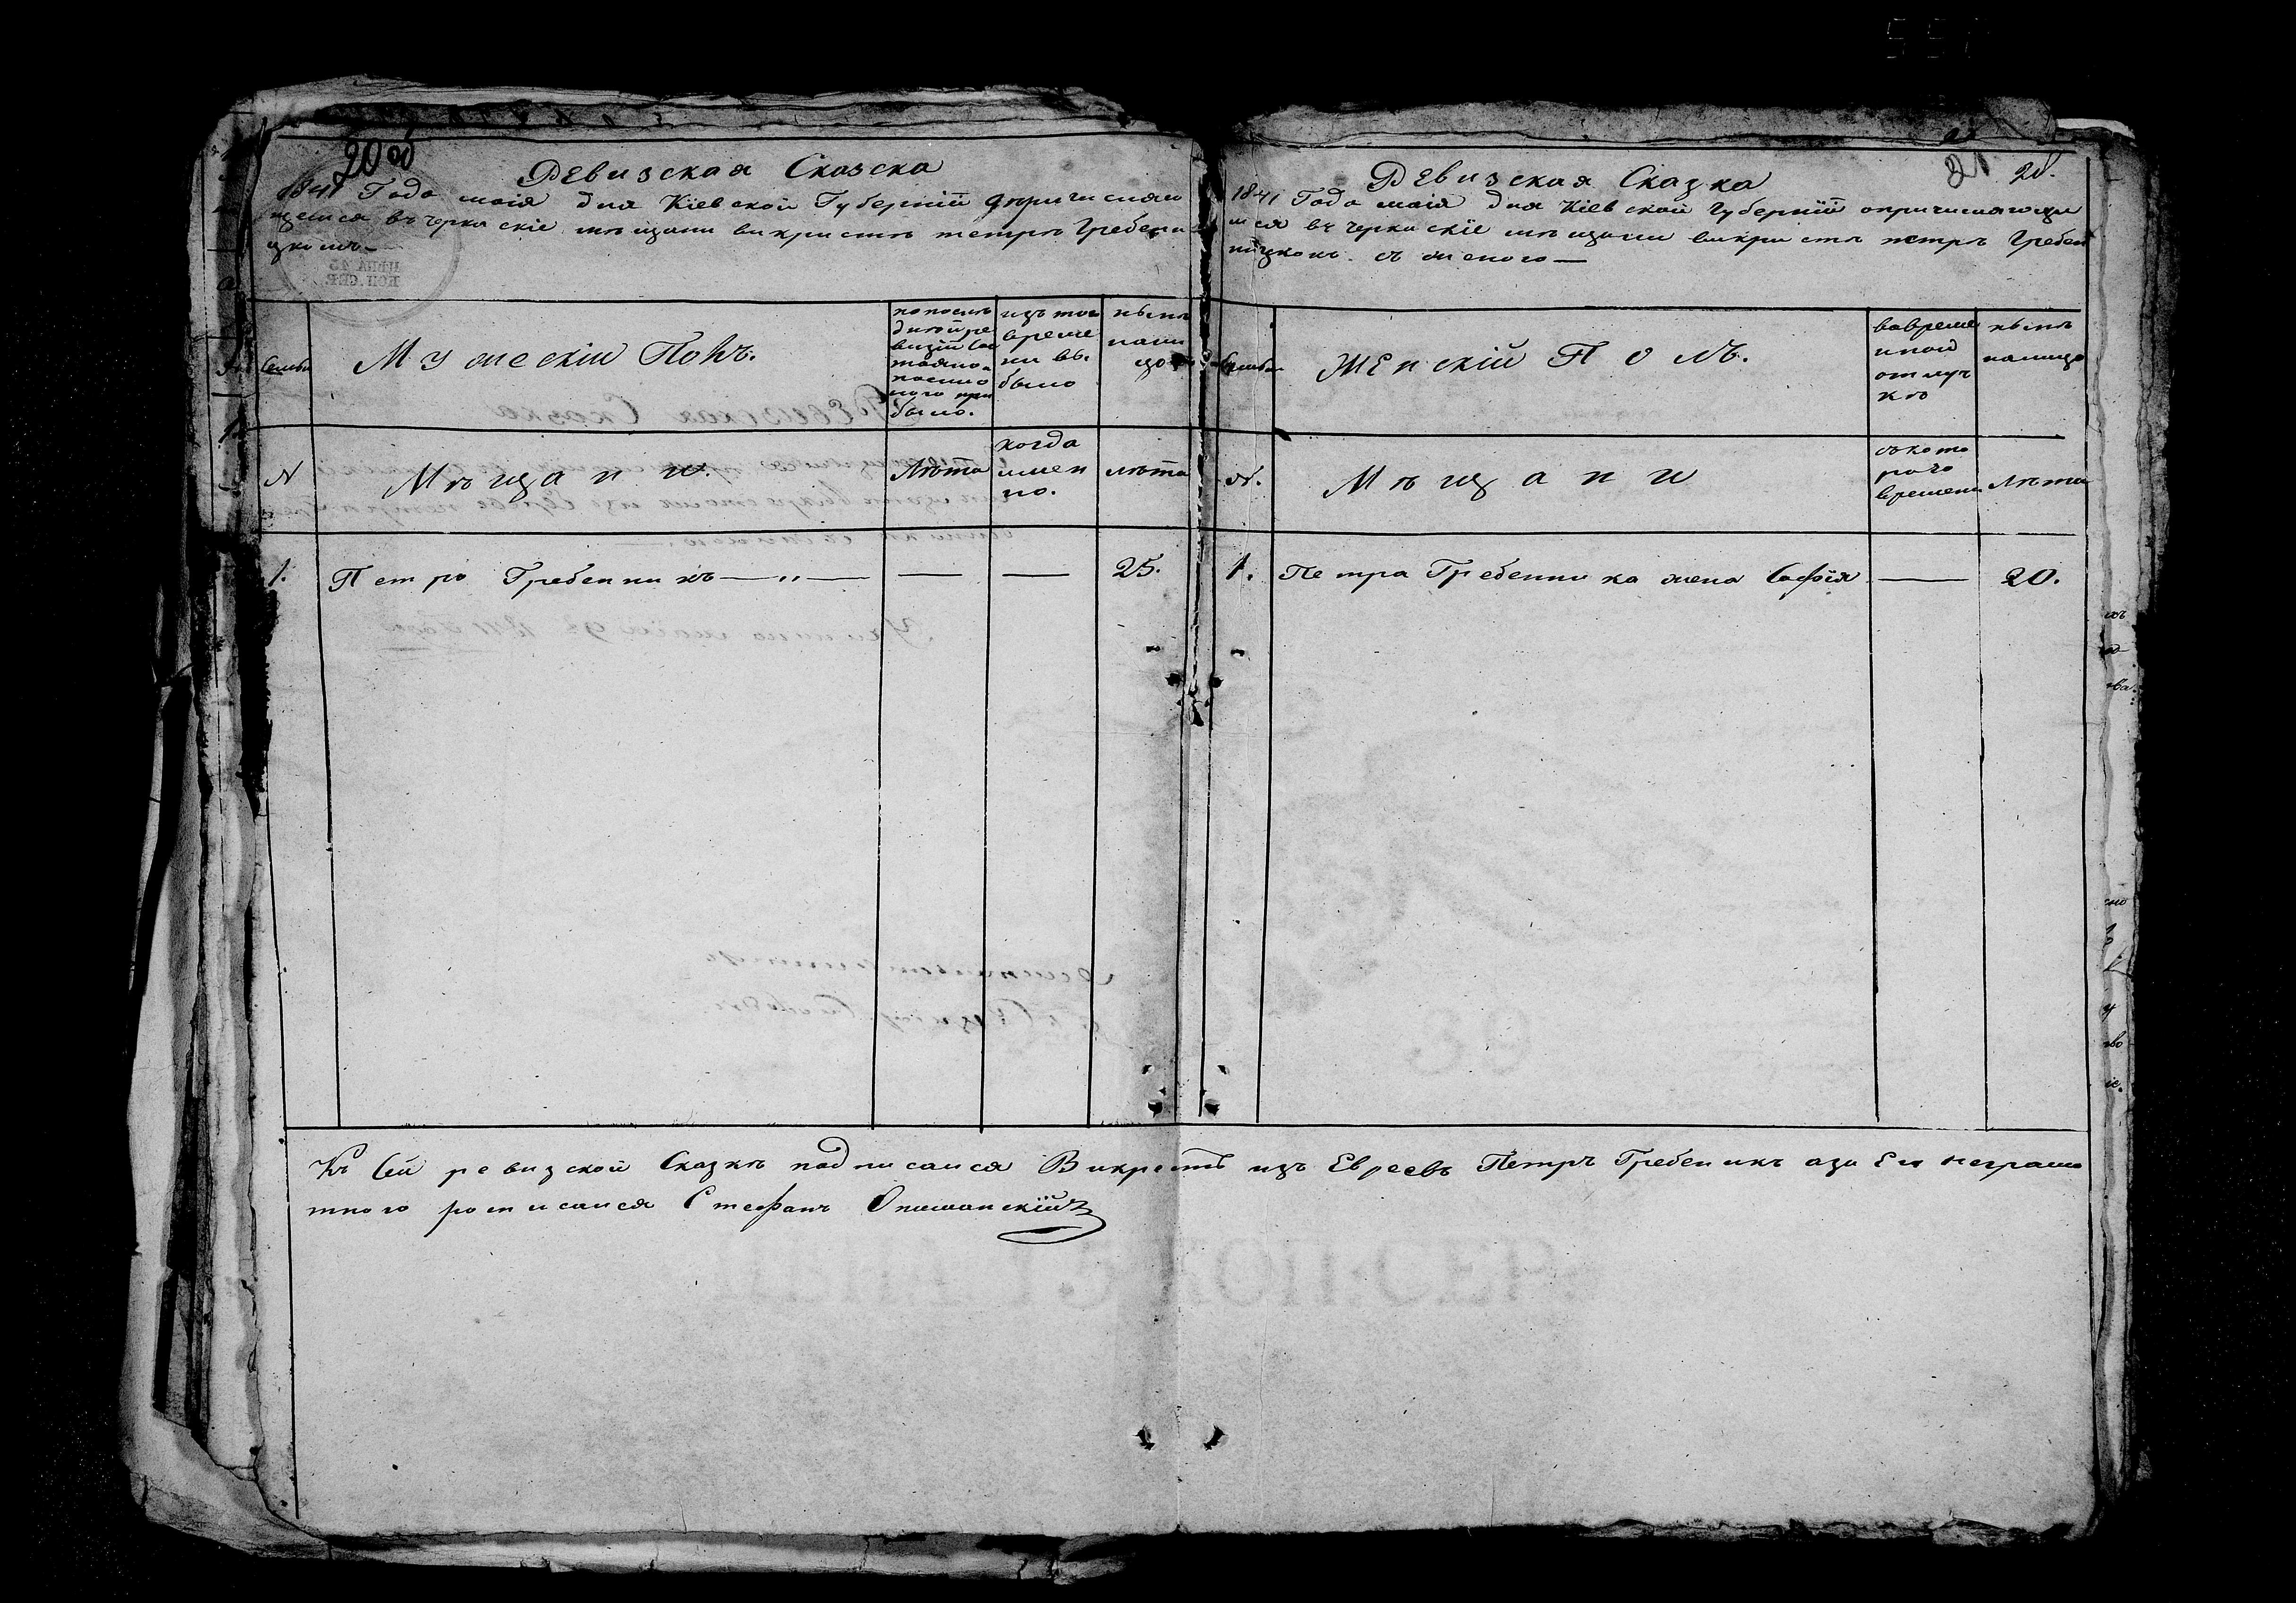 20 об
Ревизская Сказска
1841 Года маія дня Кіевской Губерніи опричисляю
щемся въ черкаскіе мѣщани викристѣ петрѣ Гребени
цкомъ —
Семьи
Мужескій Полъ.
по послѣ
дней ре
визіи сос
тояло и
после
того при
было.
изъ того
време
ни вы
было
нынѣ
нали
цо
N
Мѣщани.
Лѣта
когда
имен
но.
лѣта
1. Петро Гребенникъ — „ — — — 25.
21 20.
Ревизская Сказка
1841 Года маія дня Кіевской Губерніи опричисляюще
мся въ черкаскіе мѣщани викристѣ петрѣ Гребен
ицкомъ съ женого —
Семьи
Женскій Полъ.
вовреме
нной
отлуч
кѣ
нынѣ
налицо
N.
Мѣщани
съ кото
раго
времени
Лѣта
1. Петра Гребенника жена Софія — 20.
Къ Сей ревизской Сказкѣ подписался Викрестъ изъ Евреевъ Петръ Гребеникъ аза Его неграмо
тного росписался Стефанъ Опишанскій